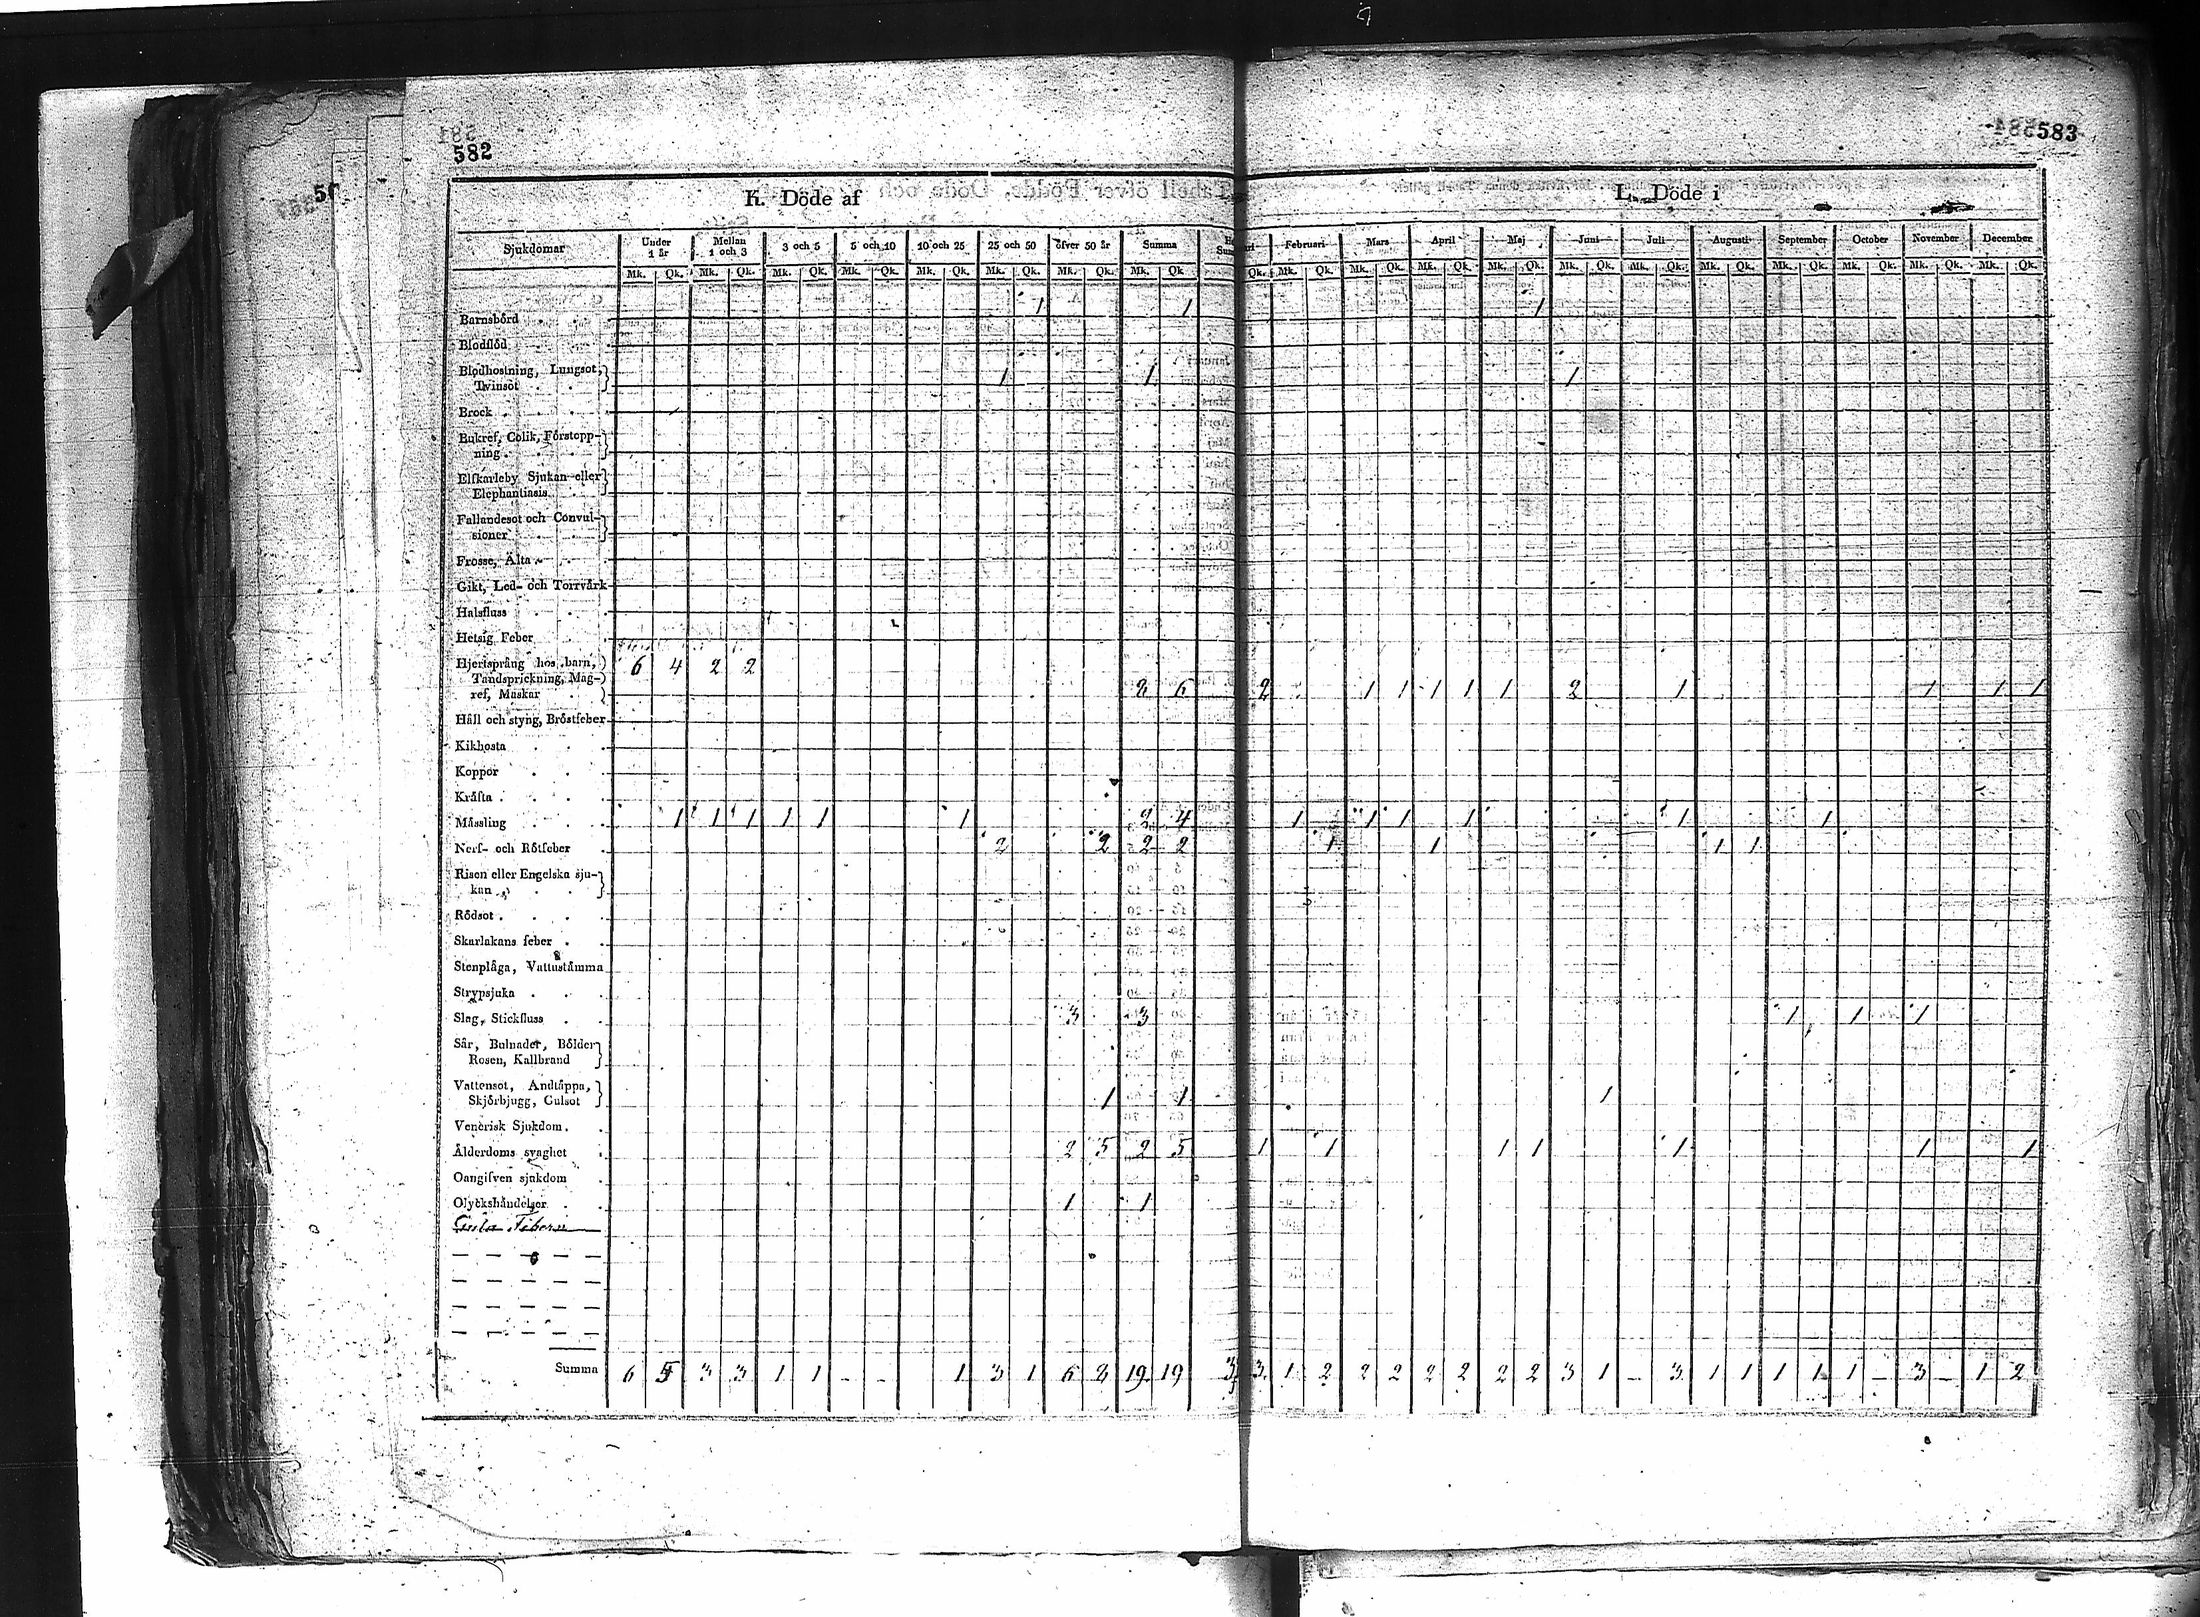 582
583
K. Döde af
L. Döde i
Sjukdomar | Under 1 år | Mellan 1 och 3 | 3 och 5 | 5 och 10 | 10 och 25 | 25 och 50 | öfver 50 år | Summa | Februari | Mars | April | Maj | Juni | Juli | Augusti | September | October | November | December
Mk. Qk. Mk. Qk. Mk. Qk. Mk. Qk. Mk. Qk. Mk. Qk. Mk. Qk. Mk. Qk Qk. Mk. Qk. Mk. Qk. Mk. Qk. Mk. Qk. Mk. Qk. Mk. Qk. Mk. Qk. Mk. Qk. Mk. Qk. Mk. Qk. Mk. Qk.
Barnsbörd 1 1 1
Blodflöd
Blodhostning, Lungsot,
Tvinsot 1 1 1
Brock
Bukref, Colik, Förstopp-
ning
Elfkarleby Sjukan eller
Elephantiasis
Fallandesot och Convul-
sioner
Frosse, Älta
Gikt, Led- och Torrvärk
Halsfluss
Hetsig Feber
Hjertsprång hos barn, 6 4 2 2
Tandsprickning, Mag-
ref, Maskar 8 6 2 1 1 1 1 1 2 1 1 1 1
Håll och styng, Bröstfeber
Kikhosta
Koppor
Kräfta
Mässling 1 1 1 1 1 1 2 4 1 1 1 1 1 1
Nerf- och Rötfeber 2 2 2 2 1 1 1 1
Risen eller Engelska sju-
kan
Rödsot
Skarlakans feber
Stenplåga, Vattustämma
Strypsjuka
Slag, Stickfluss 3 3 1 1 1
Sår, Bulnader, Bölder
Rosen, Kallbrand
Vattensot, Andtäppa,
Skjörbjugg, Gulsot 1 1 1
Venerisk Sjukdom
Ålderdoms svaghet 2 5 2 5 1 1 1 1 1 1 1
Oangifven sjukdom
Olyckshändelser 1 1
Gula Febern
Summa 6 5 3 3 1 1 - - 1 3 1 6 8 19 19 3 3 1 2 2 2 2 2 2 2 3 1 - 3 1 1 1 1 1 - 3 - 1 2